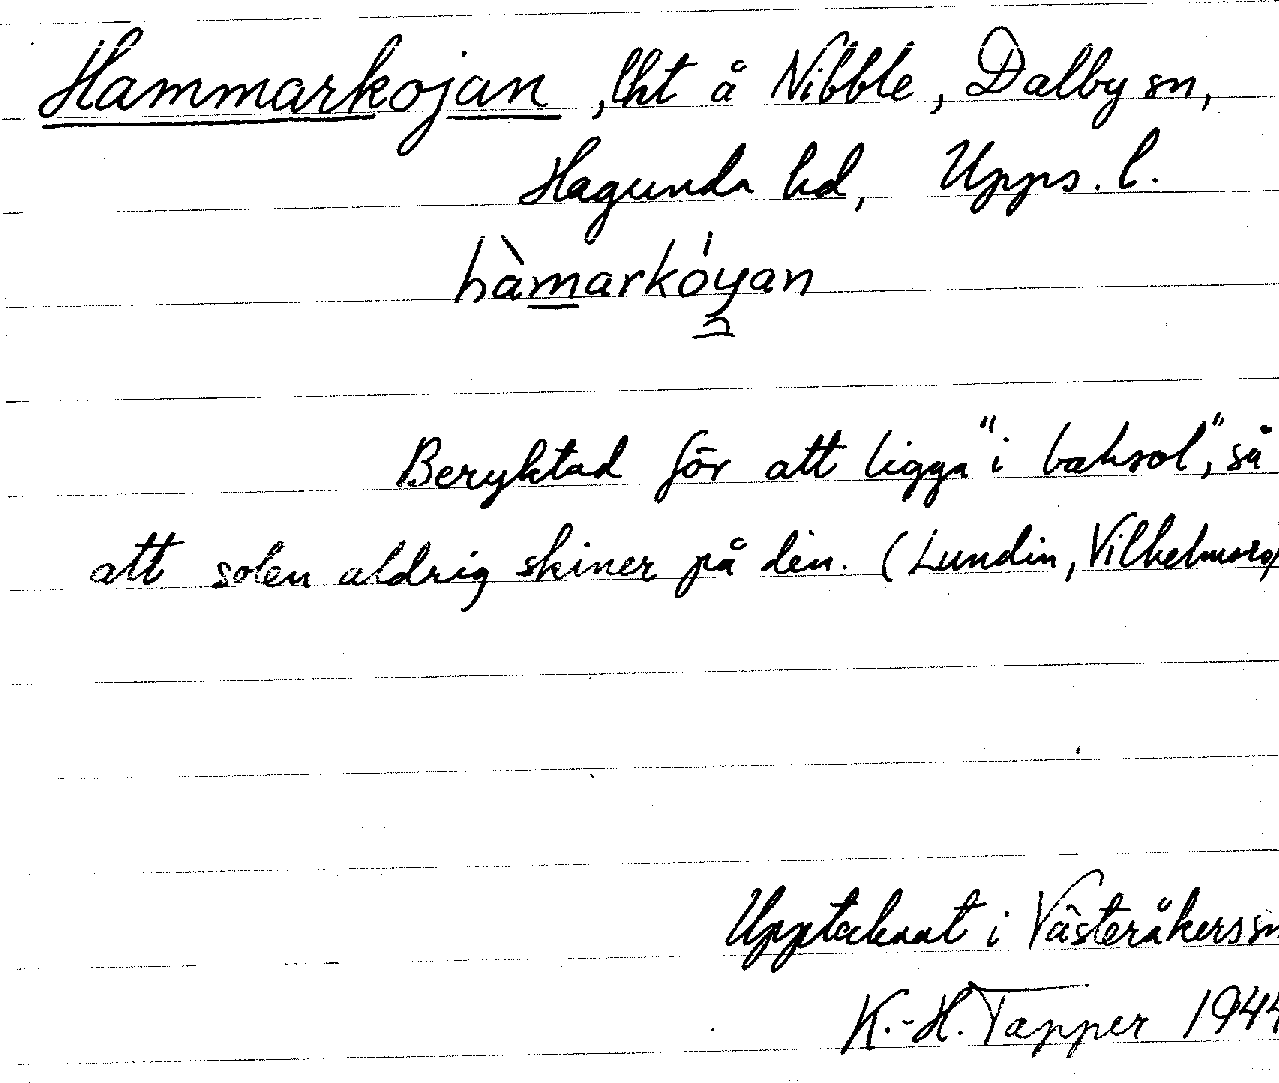 Hammarkojan, lht å Nibble, Dalby sn,
Hagunda hd, Upps. l.
hàmarkóyan
Beryktad för att ligga "i baksol", så
att solen aldrig skiner på den. (Lundin, Vilhelmsro)
Upptecknat i Västeråkers sn
K.-H. Tapper 1944